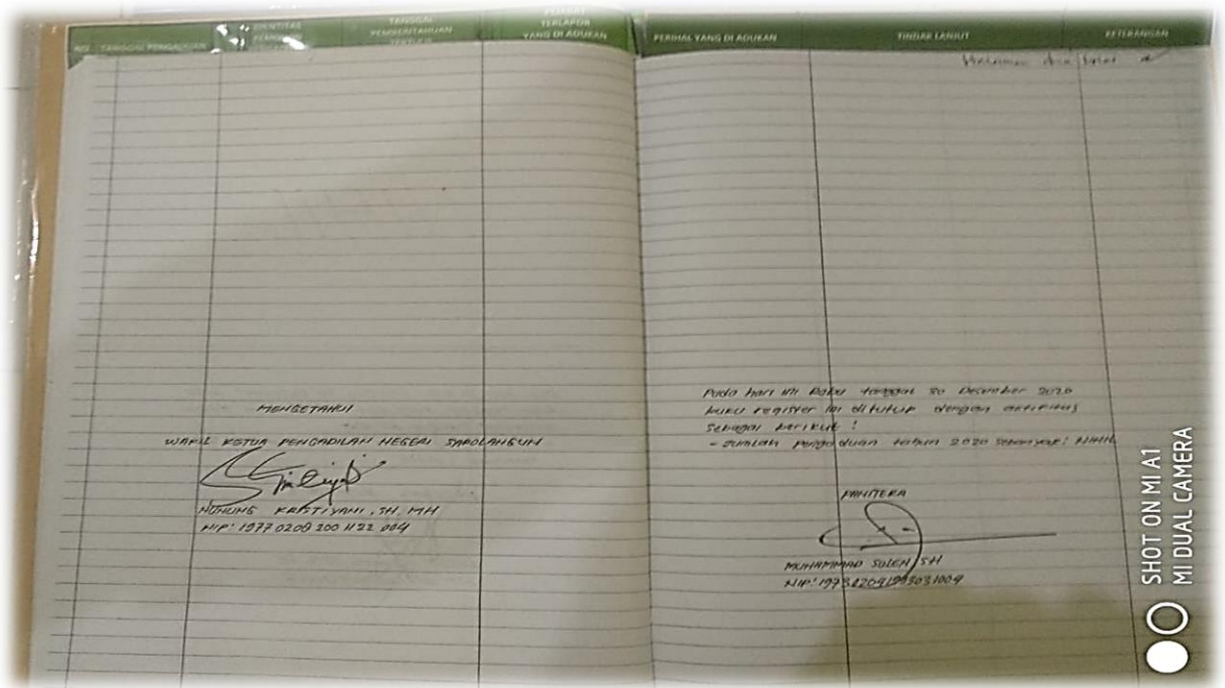 NO
TANGGAL PENGADUAN
IDENTITAS
TANGGAL
PEMBERITAHUAN
PEJABAT
TERLAPOR
YANG DI ADUKAN
PERIHAL YANG DI ADUKAN
TINDAK LANJUT
KETERANGAN
MENGETAHUI
WAKIL KETUA PENGADILAN NEGERI SAROLANGUN
NUNUNG KRISTIYANI, SH, MH
NIP: 19770208 200112 2 004
Pada hari ini Rabu tanggal 30 Desember 2020
buku register ini ditutup dengan aktifitas
sebagai berikut :
- Jumlah pengaduan tahun 2020 sebanyak: NIHIL
PANITERA
MUHAMMAD SOLEH, SH
SHOT ON MI A1
MI DUAL CAMERA